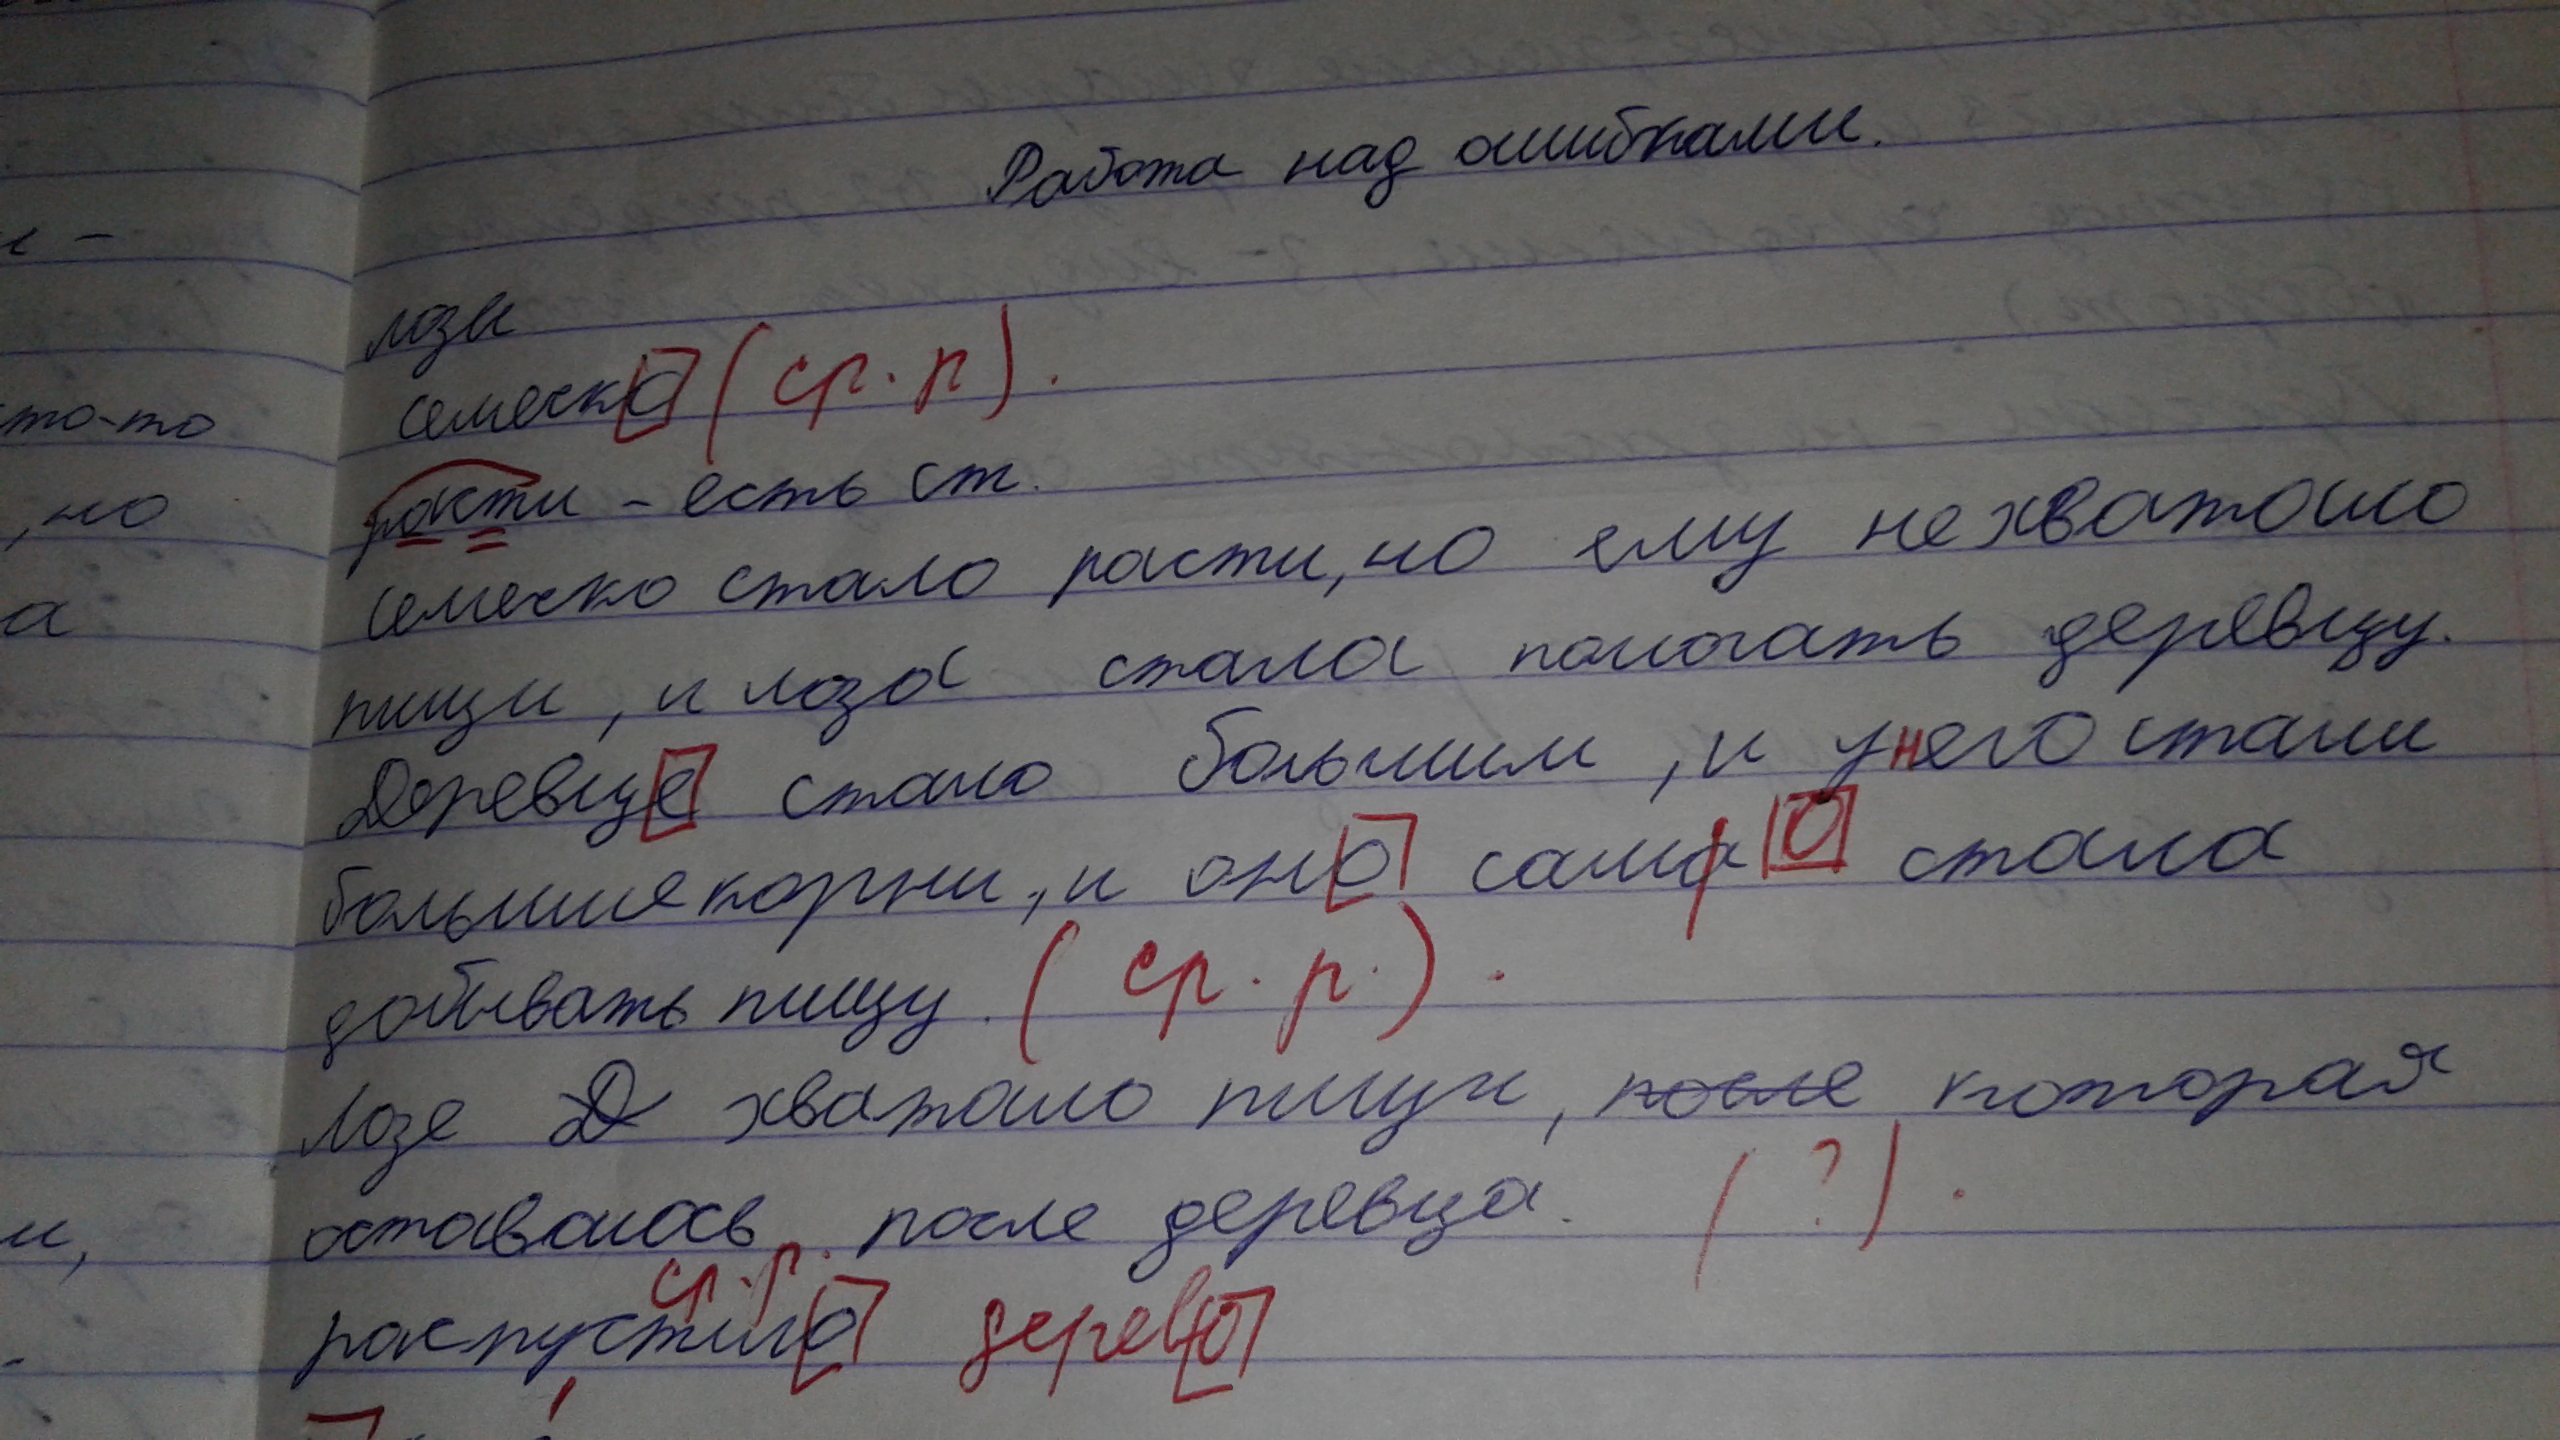 Работа над ошибками.
лозы
семечко (ср. р).
расти - есть ст.
семечко стало расти, но ему не хватало
пищи, и лоза стала помогать деревцу.
Деревце стало большим, и у него стали
большие корни, и оно сама о стала
добывать пищу. (ср. р.).
Лозе Д хватало пищи, после которая
оставалась после деревца. (?).
ср. р.
распустило дерево
то-то
, но
а
и,